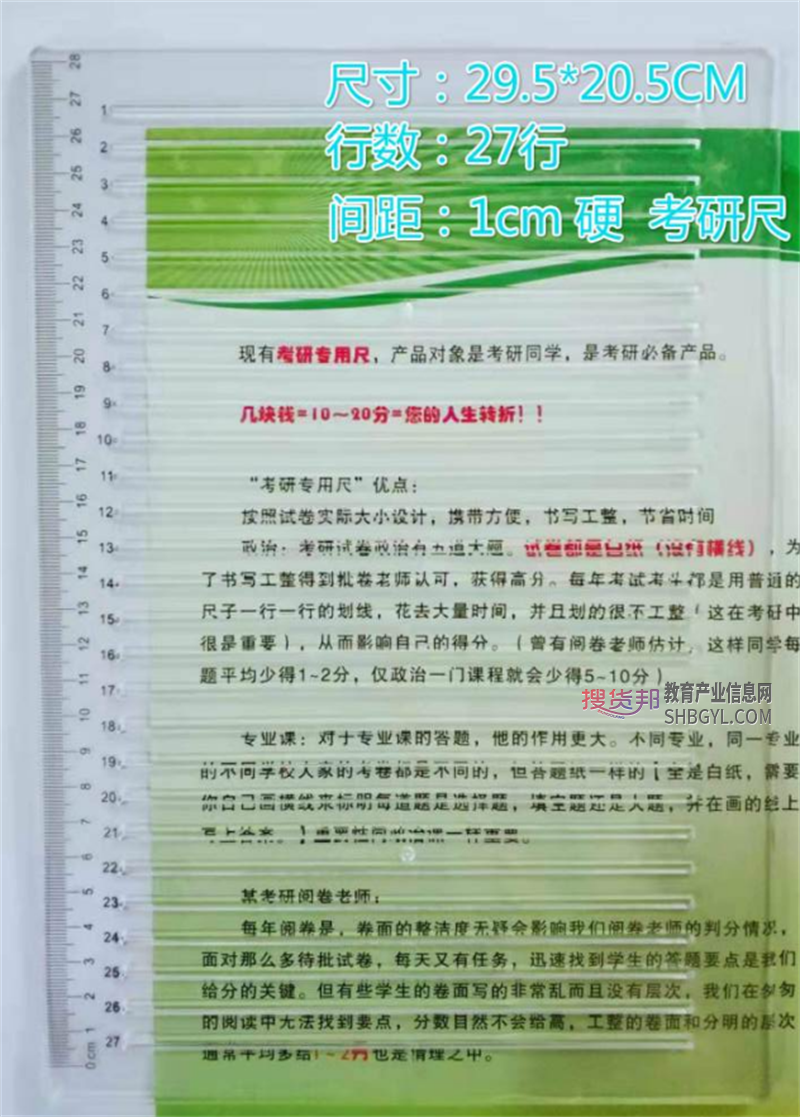 尺寸：29.5*20.5CM
行数：27行
间距：1cm 硬 考研尺
现有考研专用尺，产品对象是考研同学，是考研必备产品。
几块钱=10～20分=您的人生转折！！
“考研专用尺”优点：
按照试卷实际大小设计，携带方便，书写工整，节省时间
政治：考研试卷政治有五道大题。试卷都是白纸（没有横线），为
了书写工整得到批卷老师认可，获得高分。每年考试考生都是用普通的
尺子一行一行的划线，花去大量时间，并且划的很不工整（这在考研中
很是重要），从而影响自己的得分。（曾有阅卷老师估计，这样同学每
题平均少得1~2分，仅政治一门课程就会少得5~10分）
搜货邦 教育产业信息网
SHBGYL.COM
专业课：对于专业课的答题，他的作用更大。不同专业，同一专业
的不同学校大家的考卷都是不同的，但答题纸一样的【全是白纸，需要
你自己画横线来标明每道题是选择题，填空题还是大题，并在画的线上
写上答案。】重要性同政治课一样重要。
某考研阅卷老师：
每年阅卷是，卷面的整洁度无疑会影响我们阅卷老师的判分情况，
面对那么多待批试卷，每天又有任务，迅速找到学生的答题要点是我们
给分的关键。但有些学生的卷面写的非常乱而且没有层次，我们在匆匆
的阅读中无法找到要点，分数自然不会给高，工整的卷面和分明的层次
通常平均多给1～2分也是情理之中。
28
27
26
25
24
23
22
21
20
19
18
17
16
15
14
13
12
11
10
9
8
7
6
5
4
3
2
1
0cm
1
2
3
4
5
6
7
8
9
10
11
12
13
14
15
16
17
18
19
20
21
22
23
24
25
26
27